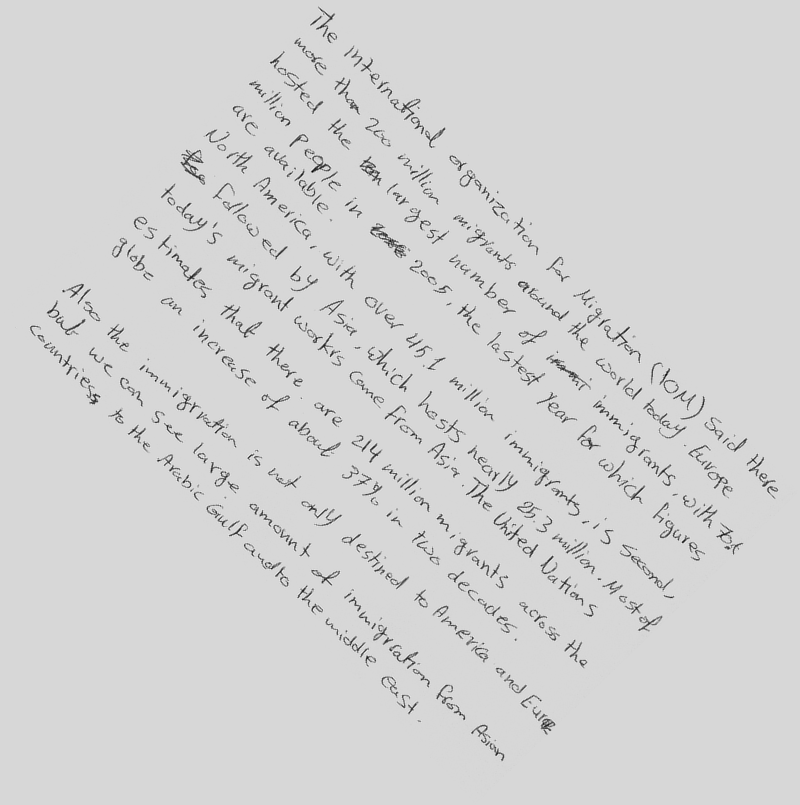 The international organization for Migration (IOM) said there
more than 200 million migrants around the world today. Europe
hosted the largest number of immigrants, with 70.6
million People in 2005, the lastest Year for which figures
are available.
North America, with over 45.1 million immigrants, is Second,
followed by Asia, which hosts nearly 25.3 million. Most of
today's migrant workrs came from Asia. The United Nations
estimates that there are 214 million migrants across the
globe an increase of about 37% in two decades.
Also the immigrration is not only destined to America and Europe
but we can see large amount of immigrration from Asian
countries to the Arabic Gulf and to the middle East.